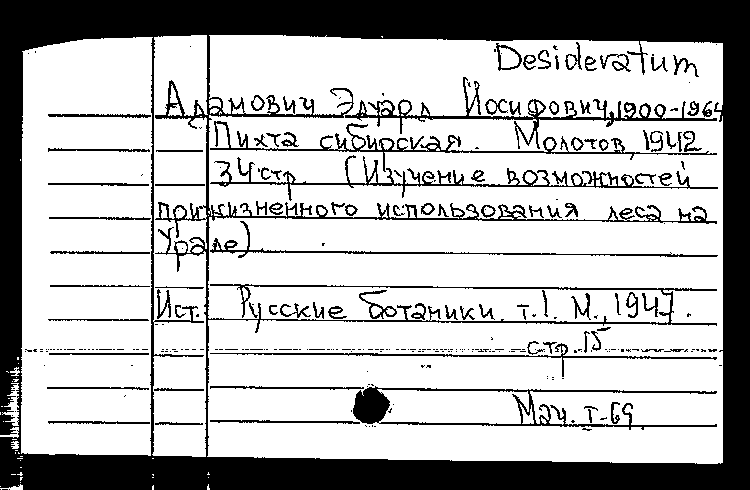 Desideratum
Адамович Эдуард Иосифович, 1900-1964
Пихта сибирская. Молотов, 1942.
34 стр. (Изучение возможностей
прижизненного использования леса на
Урале).
Ист.: Русские ботаники. т.1. М., 1947.
стр. 15
Мач. I-69.